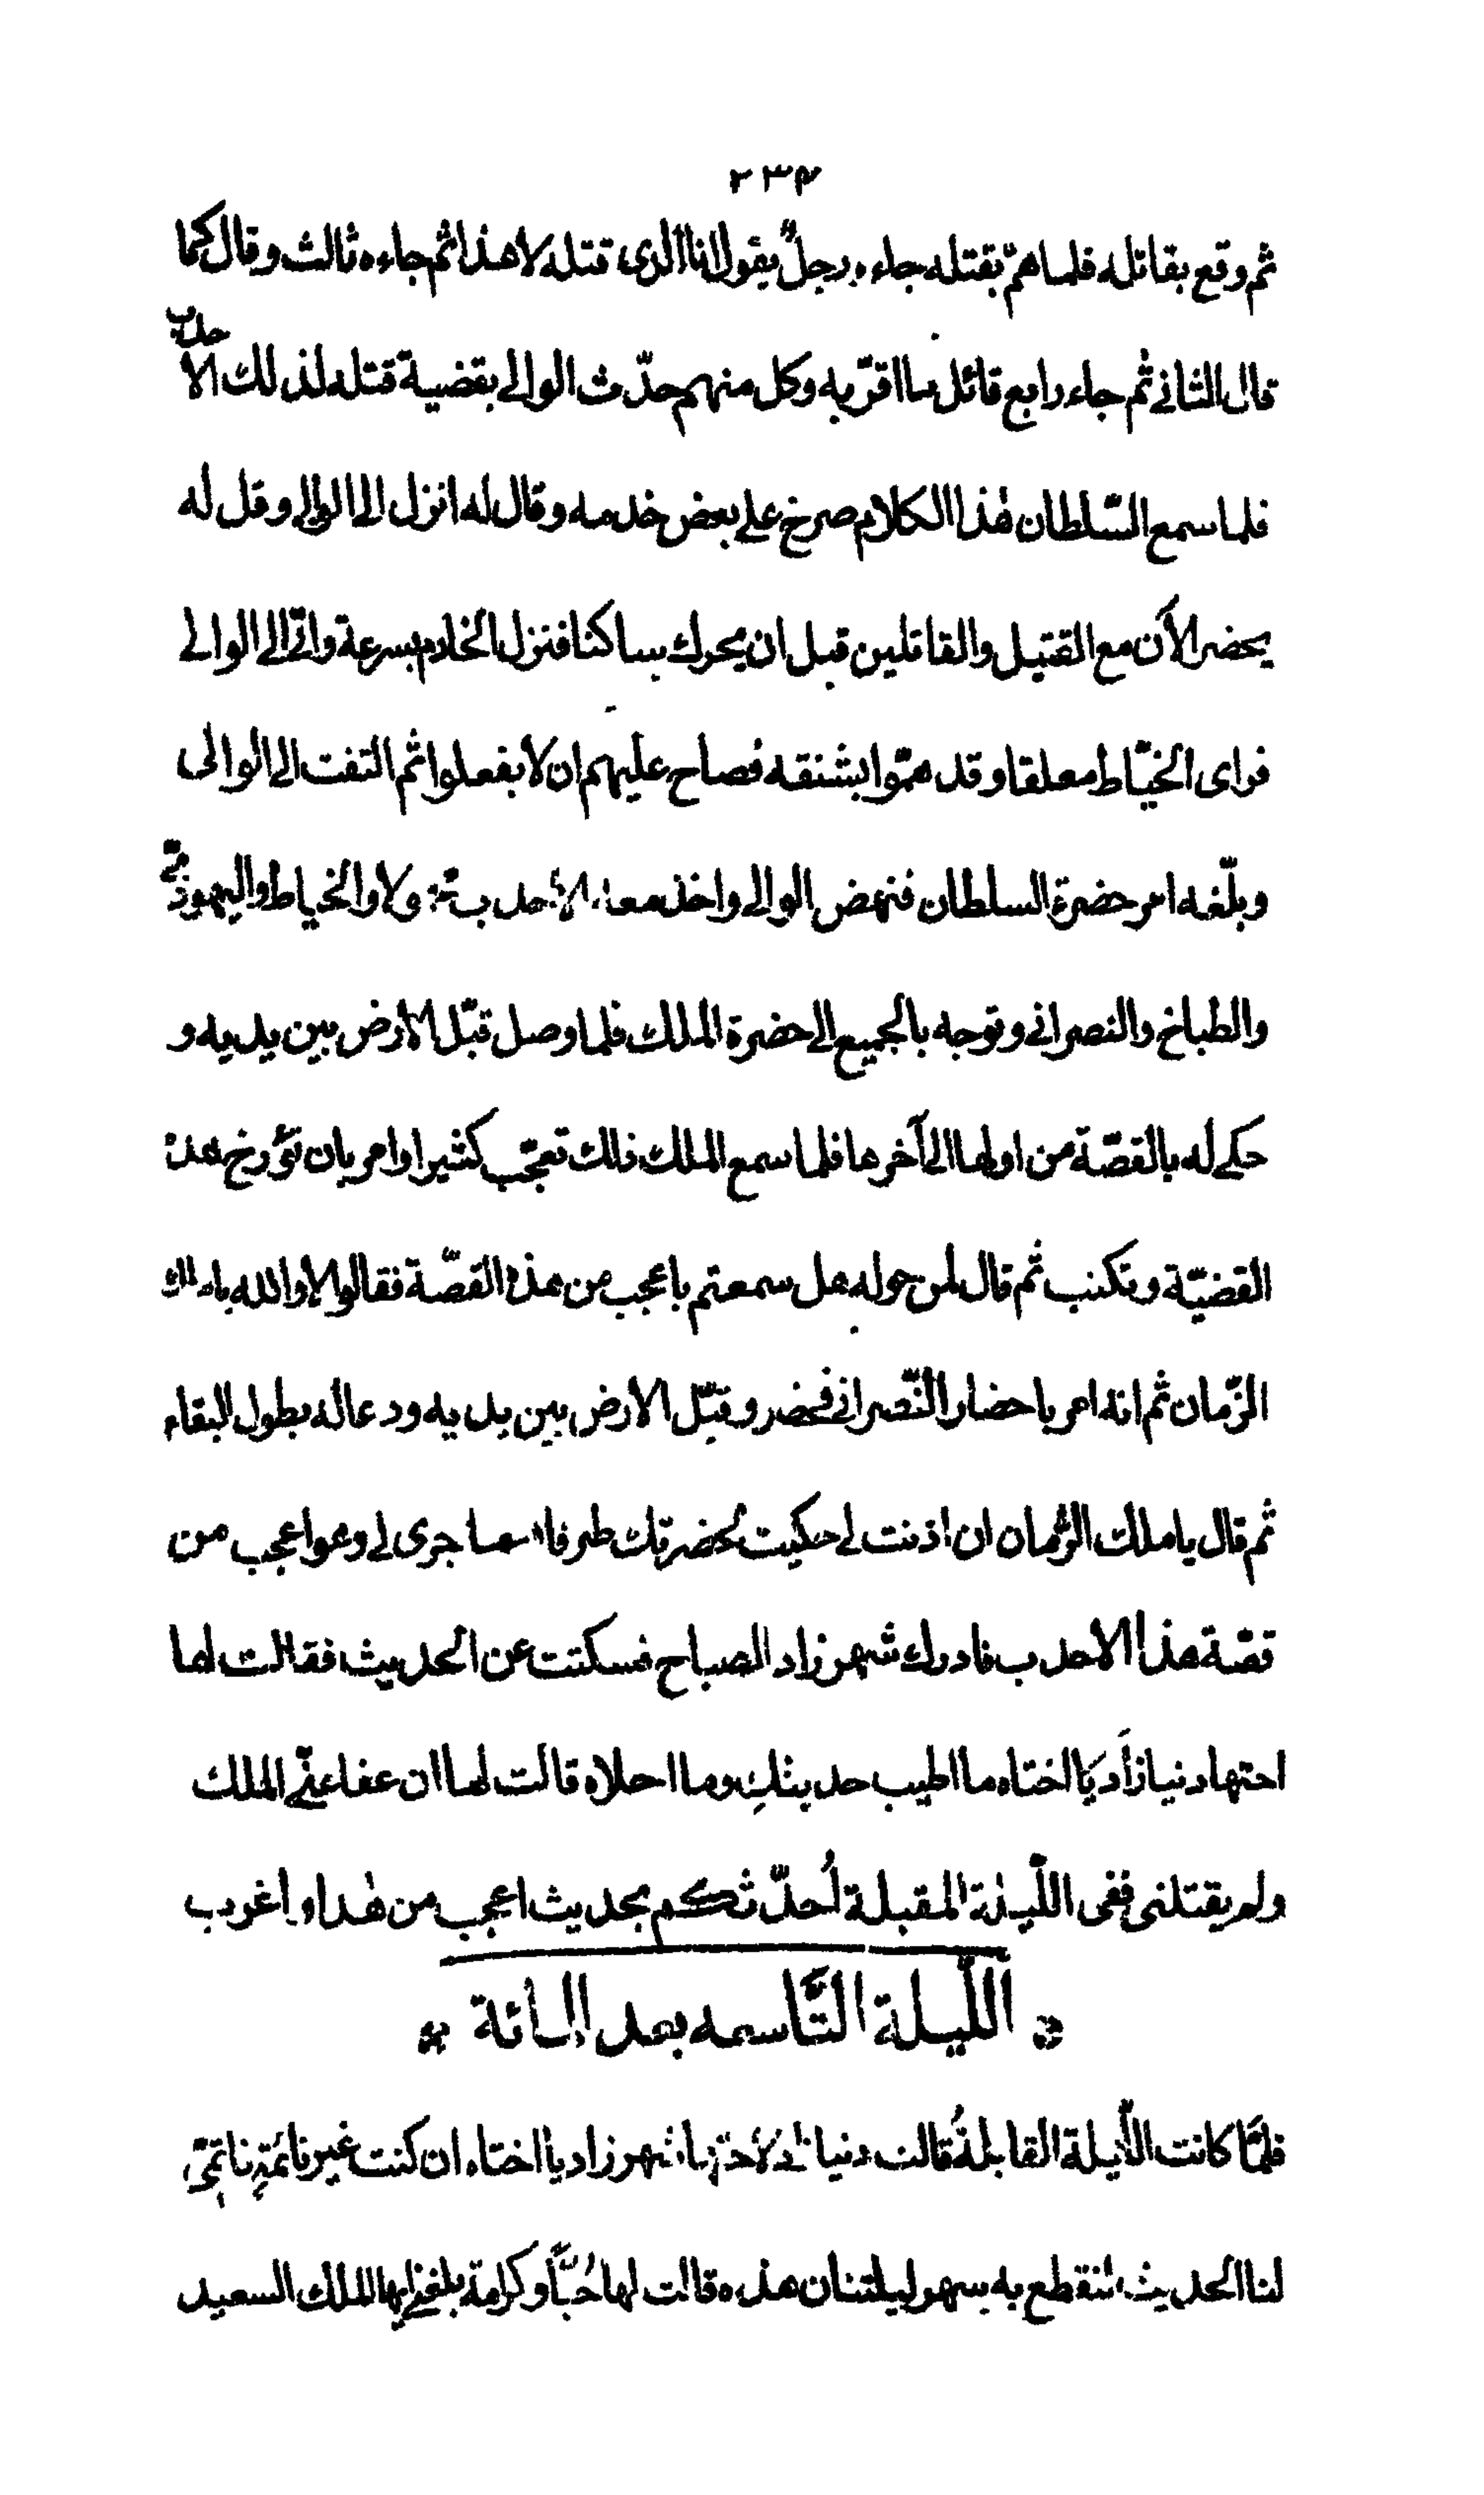 ٢٣٤
ثم وقع بقاتله فلما همّ بقتله جاءه رجلٌ يقول انا الذى قتله لا هذا ثم جاءه ثالث وقال كما
قال الثانى ثم جاء رابع قائل ما اقرّ به وكل منهم حدّث الوالى بقضية قتله لذلك الاحدب
فلما سمع السّلطان هٰذا الكلام صرخ على بعض خدمه وقال له انزل الى الوالى وقل له
يحضر الآن مع القتيل والقاتلين قبل ان يحرك ساكنا فنزل الخادم بسرعة واتى الى الوالى
فراى الخيّاط معلقا وقد همّوا بشنقه فصاح عليهم ان لا يفعلوا ثم التفت الى الوالى
وبلّغه امر حضرة السلطان فنهض الوالى واخذ معه الاحدب محمولا والخياط واليهودىّ
والطباخ والنصرانى وتوجه بالجميع الى حضرة الملك فلما وصل قبّل الارض بين يديه و
حكى له بالقصّة من اولها الى آخرها فلما سمع الملك ذلك تعجّب كثيرا وامر بان تؤرخ هذه
القضيّة وتكتب ثم قال لمن حوله هل سمعتم باعجب من هذه القصّة فقالوا لا والله ياملك
الزّمان ثم انه امر باحضار النّصرانى فحضر وقبّل الارض بين يديه ودعا له بطول البقاء
ثم قال ياملك الزّمان ان اذنت لى حكيت لحضرتك طرفا مما جرى لى وهو اعجب من
قصّة هذا الاحدب فادرك شهرزاد الصباح فسكتت عن الحديث فقالت لها
اختها دنيازاد يَا اختاه ما اطيب حديثكِ وما احلاه قالت لها ان عفا عنّى الملك
ولم يقتلنى ففى اللّيلة المقبلة لُحدّثكم بحديث اعجب من هٰذا واغرب
الليلة التّاسعه بعد المائة
فلمّا كانت اللّيلة القابلةُ قالت دنيازاد لاختها شهرزاد يا اختاه ان كنت غير نائمة فاتمّى
لنا الحديث لنقطع به سهر ليلتنا هذه قالت لها حُبّاً وكرامة بلغنى ايها الملك السعيد